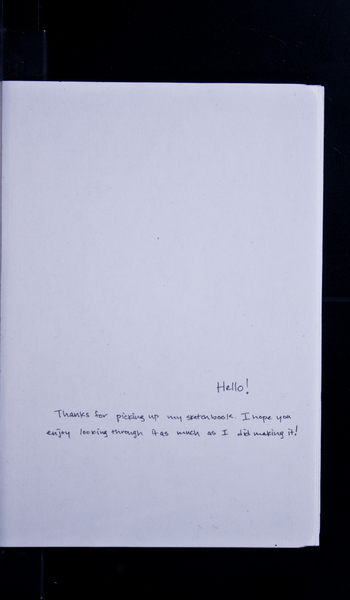 Hello!
Thanks for picking up my sketchbook. I hope you
enjoy looking through it as much as I did making it!